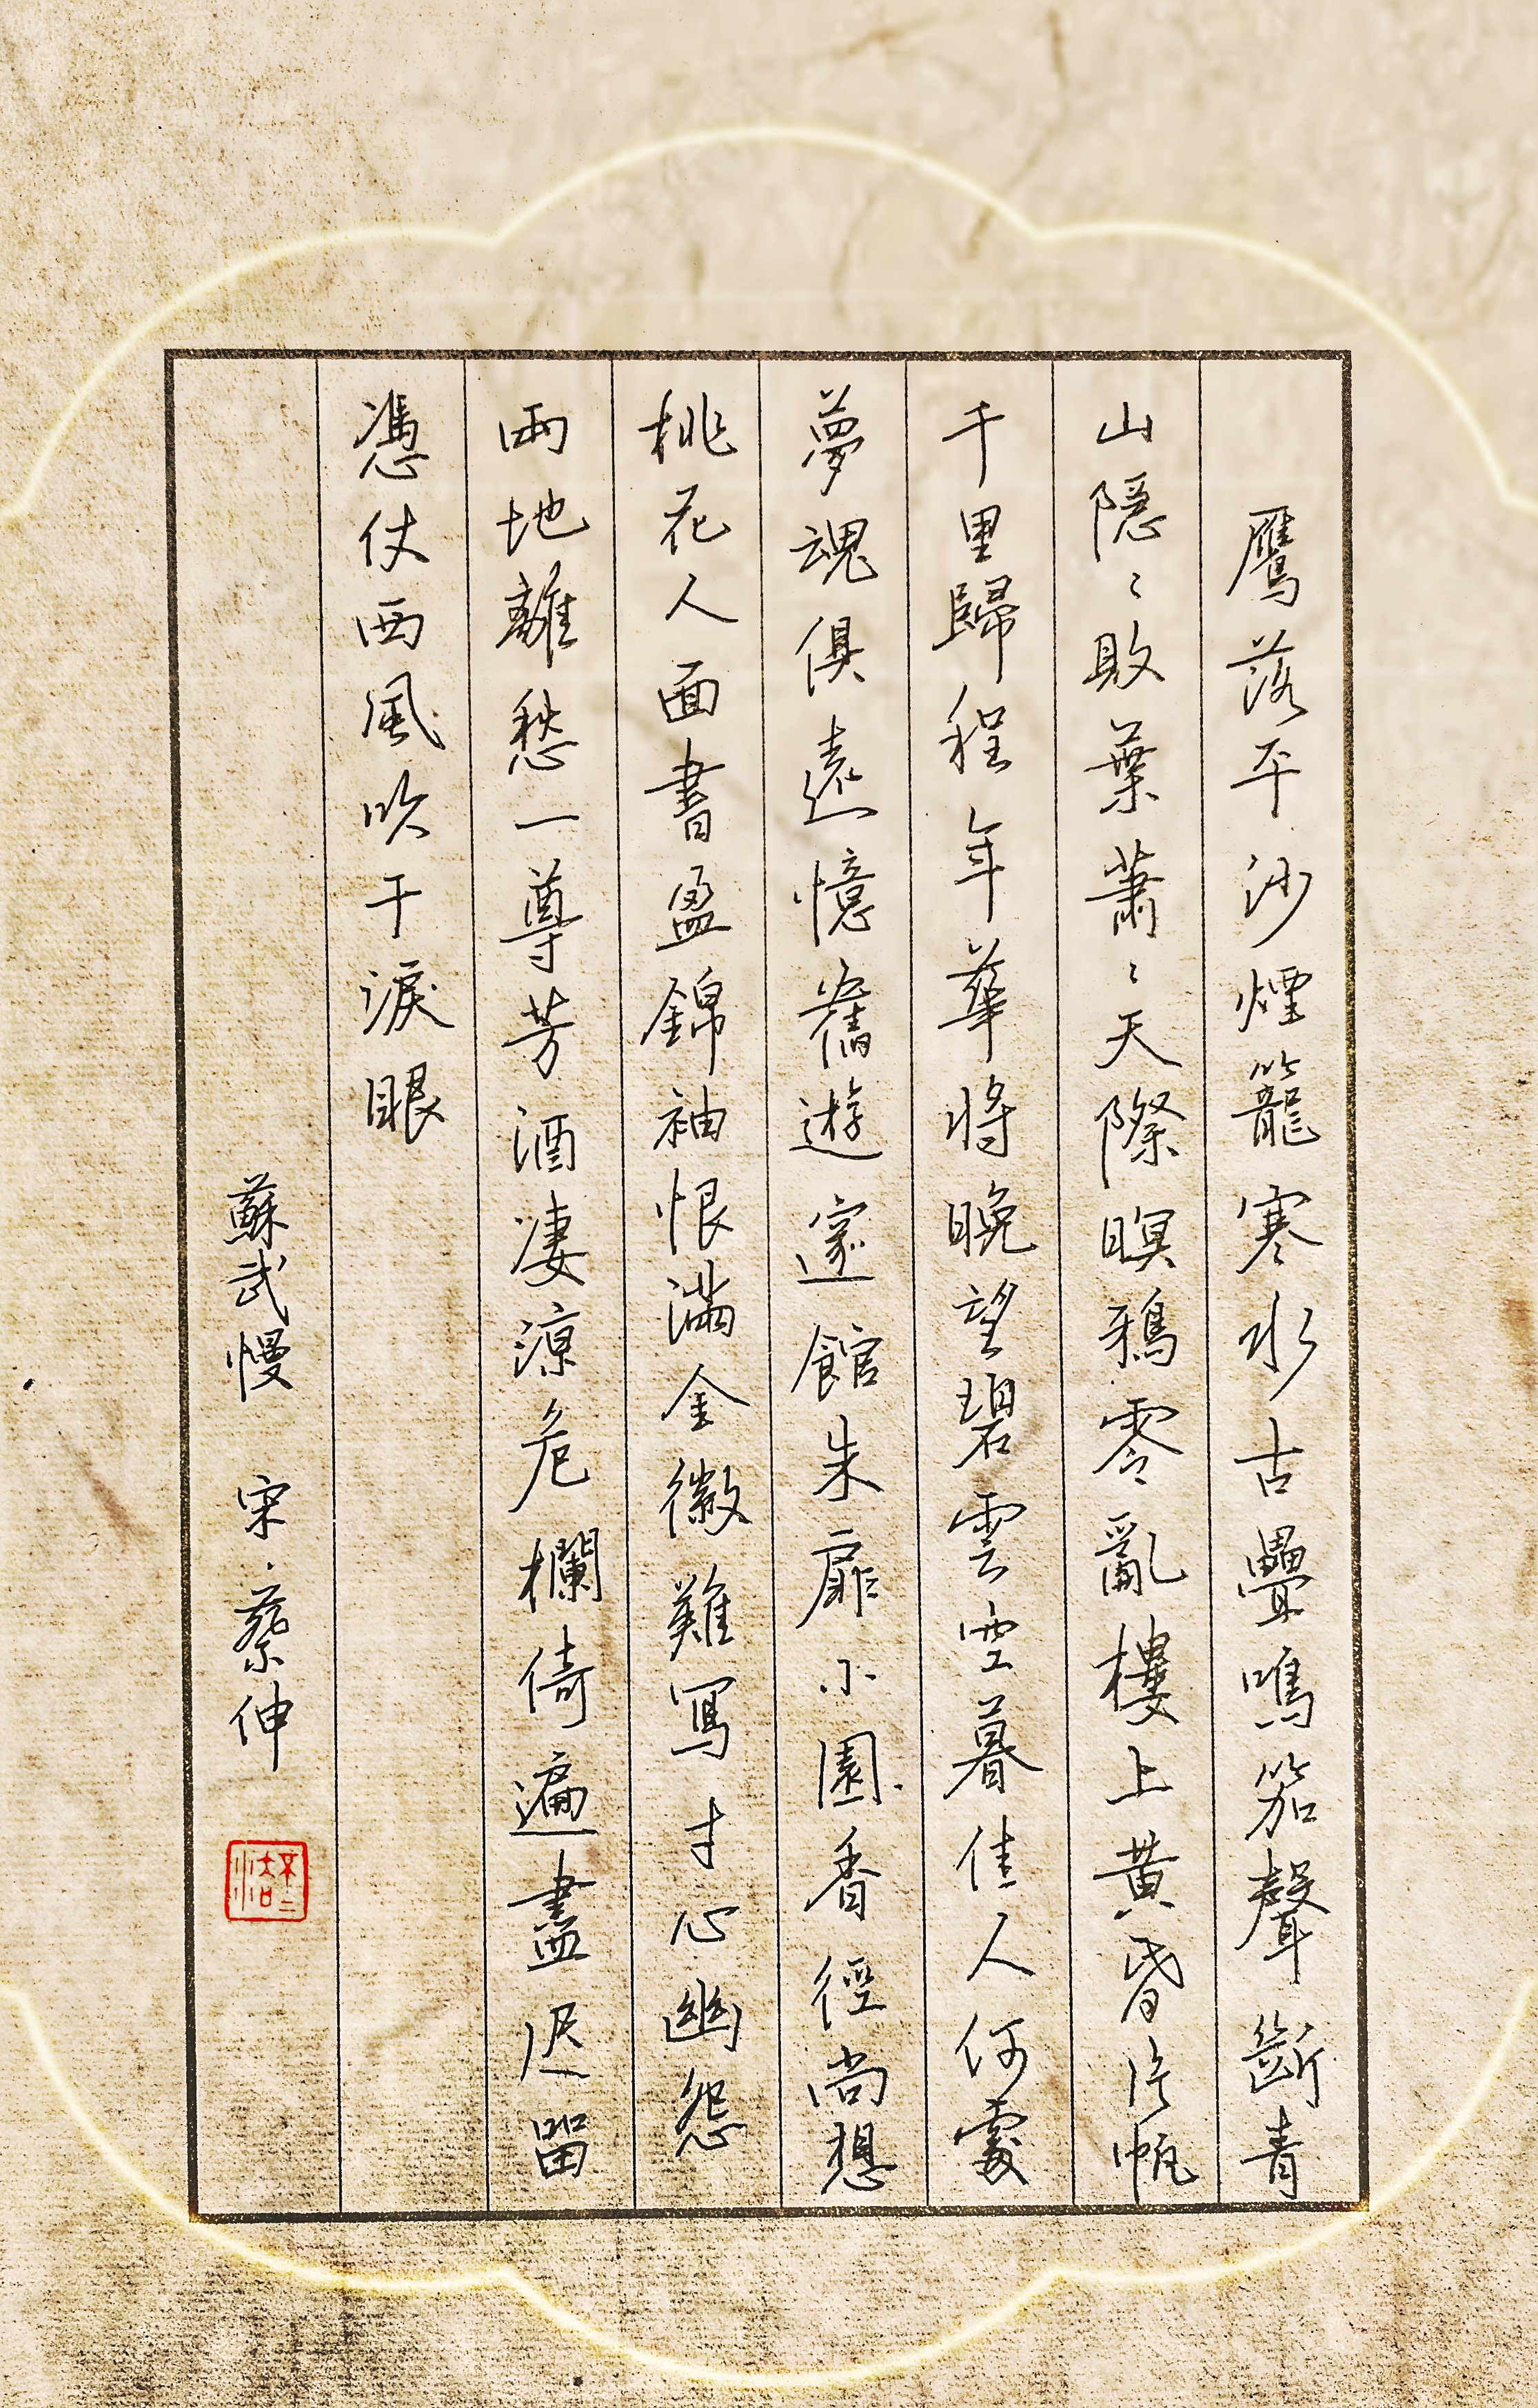 鴈落平沙煙籠寒水古壘鳴笳聲斷青
山隱〻敗葉蕭〻天際暝鴉零亂樓上黃昏片帆
千里歸程年華將晚望碧雲空暮佳人何處
夢魂俱遠憶舊遊邃館朱扉小園香徑尚想
桃花人面書盈錦袖恨滿金徽難寫寸心幽怨
兩地離愁一尊芳酒淒涼危欄倚遍盡遲留
憑仗西風吹干淚眼
蘇武慢 宋·蔡伸